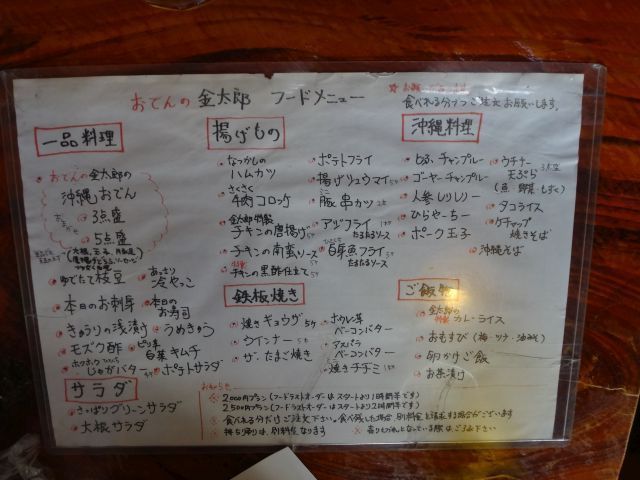 おでんの 金太郎 フードメニュー
食べれる分ずつご注文お願いします。
一品料理
おでんの金太郎の
沖縄おでん
3点盛
5点盛
ゆでたて枝豆
あっさり
冷やっこ
本日のお刺身
本日の
お寿司
きゅうりの浅漬け
うめきゅう
モズク酢
ピリ辛
白菜キムチ
ホクホク
じゃがバター
ポテトサラダ
サラダ
さっぱりグリーンサラダ
大根サラダ
揚げもの
なつかしの
ハムカツ
さくさく
牛肉コロッケ
金太郎特製
チキンの唐揚げ
チキンの南蛮ソース
チキンの黒酢仕立て
ポテトフライ
揚げシュウマイ
豚串カツ
アジフライ
たるたるソース
白身魚フライ
たるたるソース
鉄板焼き
焼きギョウザ
ウインナー
ザ、たまご焼き
ホウレン草
ベーコンバター
アスパラ
ベーコンバター
焼きチヂミ
沖縄料理
とうふチャンプルー
ゴーヤーチャンプルー
人参しりしりー
ひらやーちー
ポーク玉子
ウチナー
天ぷら
(魚 野菜 もずく)
タコライス
ケチャップ
焼きそば
沖縄そば
ご飯物
金太郎の
特製 カレーライス
おむすび (梅・ツナ・油みそ)
卵かけご飯
お茶漬け
お知らせ
2000円プラン (フードラストオーダーはスタートより1時間半です)
2500円プラン (フードラストオーダーはスタートより2時間半です)
食べれる分だけご注文下さい。食べ残した場合、別料金を請求する場合がございます
持ち帰りは、別料金になります
売り切れとなっている際はご了承下さい